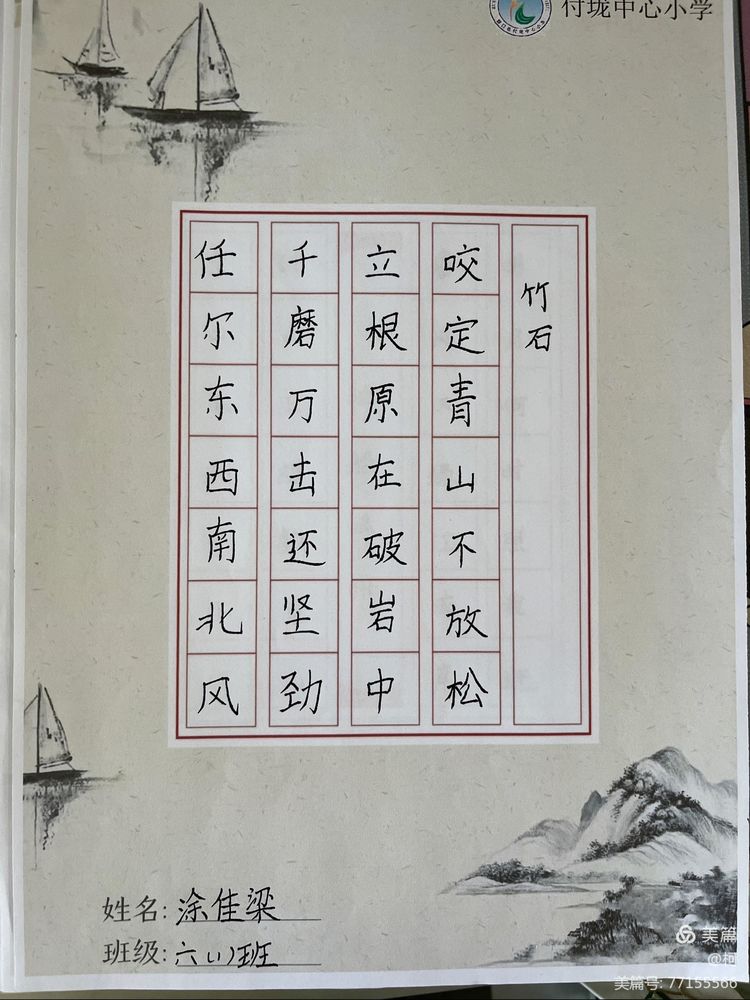 付垅中心小学
竹石
咬定青山不放松
立根原在破岩中
千磨万击还坚劲
任尔东西南北风
姓名:涂佳梁
班级:六(1)班
美篇
@柯
美篇号: 77155566